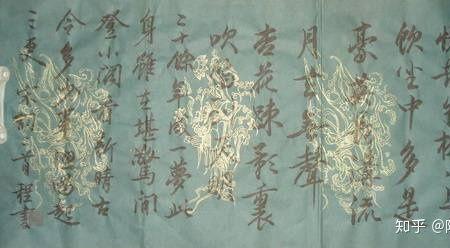 飲坐中多是
豪英長溝流
月去無聲
杏花疎影裏
吹笛到天明
二十餘年成一夢此
身雖在堪驚閒
登小閣看新晴古
今多少事漁唱起
三更
知乎